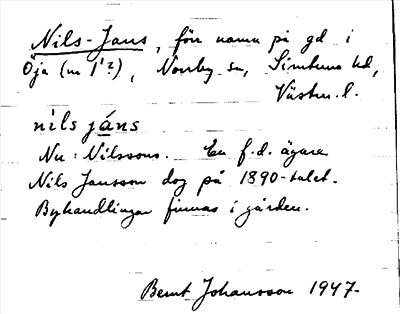 Nils-Jans, förr namn på gd i
Öja (nr 1¹?), Norrby sn, Simtuna hd,
Västm. l.
nìls jáns
Nu: Nilssons. En f.d. ägare
Nils Jansson dog på 1890-talet.
Byhandlingar finnas i gården.
Bernt Johansson 1947.